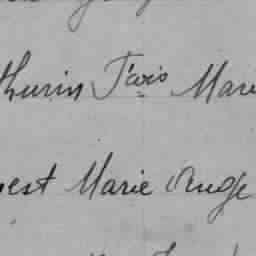 thurin F^cois Mari
nest Marie Ange